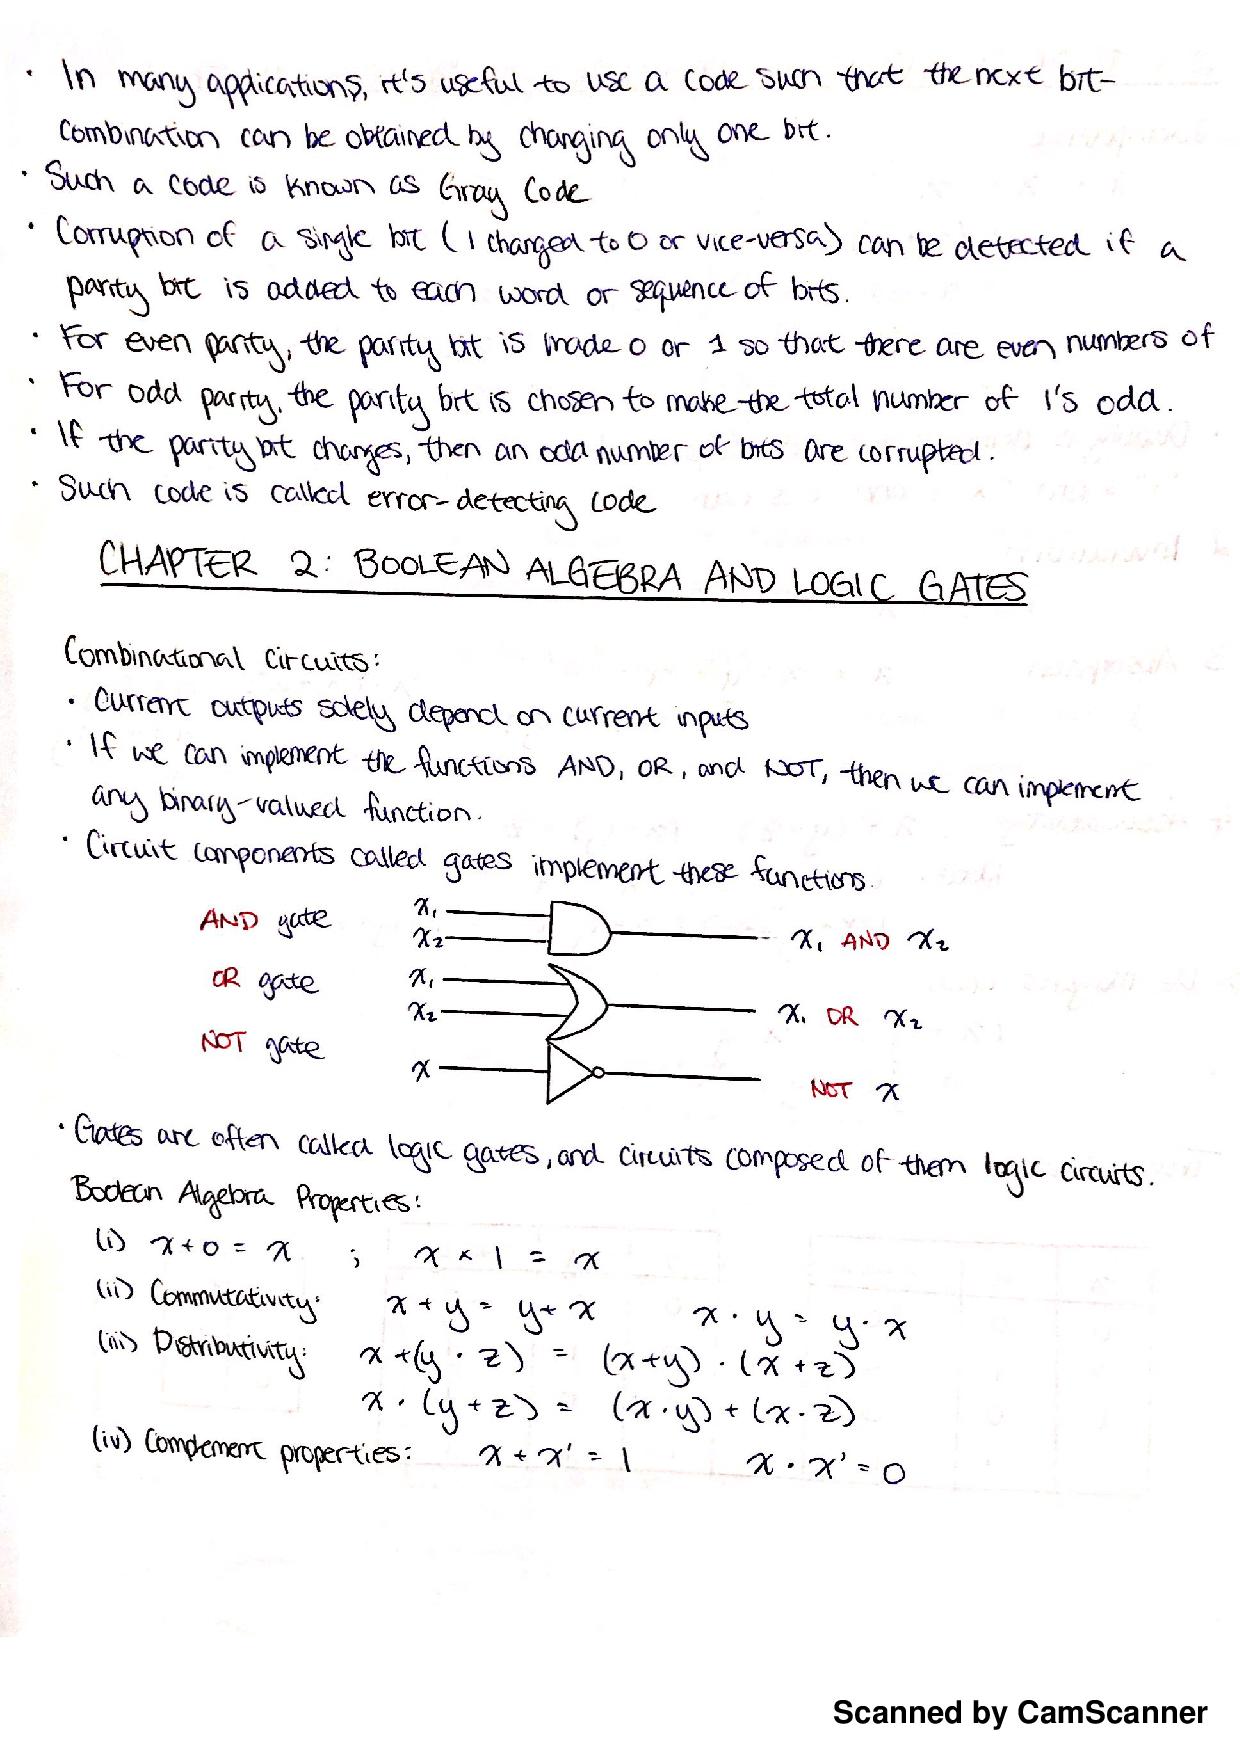 · In many applications, it's useful to use a code such that the next bit-
combination can be obtained by changing only one bit.
· Such a code is known as Gray Code
· Corruption of a single bit (1 changed to 0 or vice-versa) can be detected if a
parity bit is added to each word or sequence of bits.
· For even parity, the parity bit is made 0 or 1 so that there are even numbers of
· For odd parity, the parity bit is chosen to make the total number of 1's odd.
· If the parity bit changes, then an odd number of bits are corrupted.
· Such code is called error-detecting code
CHAPTER 2: BOOLEAN ALGEBRA AND LOGIC GATES
Combinational Circuits:
· Current outputs solely depend on current inputs
· If we can implement the functions AND, OR, and NOT, then we can implement
any binary-valued function.
· Circuit components called gates implement these functions.
AND gate x₁ x₂ x₁ AND x₂
OR gate x₁ x₂ x₁ OR x₂
NOT gate x NOT x
· Gates are often called logic gates, and circuits composed of them logic circuits.
Boolean Algebra Properties:
(i) x+0 = x ; x × 1 = x
(ii) Commutativity: x + y = y + x x · y = y · x
(iii) Distributivity: x +(y · z) = (x+y) · (x + z)
x · (y + z) = (x · y) + (x · z)
(iv) Complement properties: x + x' = 1 x · x' = 0
Scanned by CamScanner